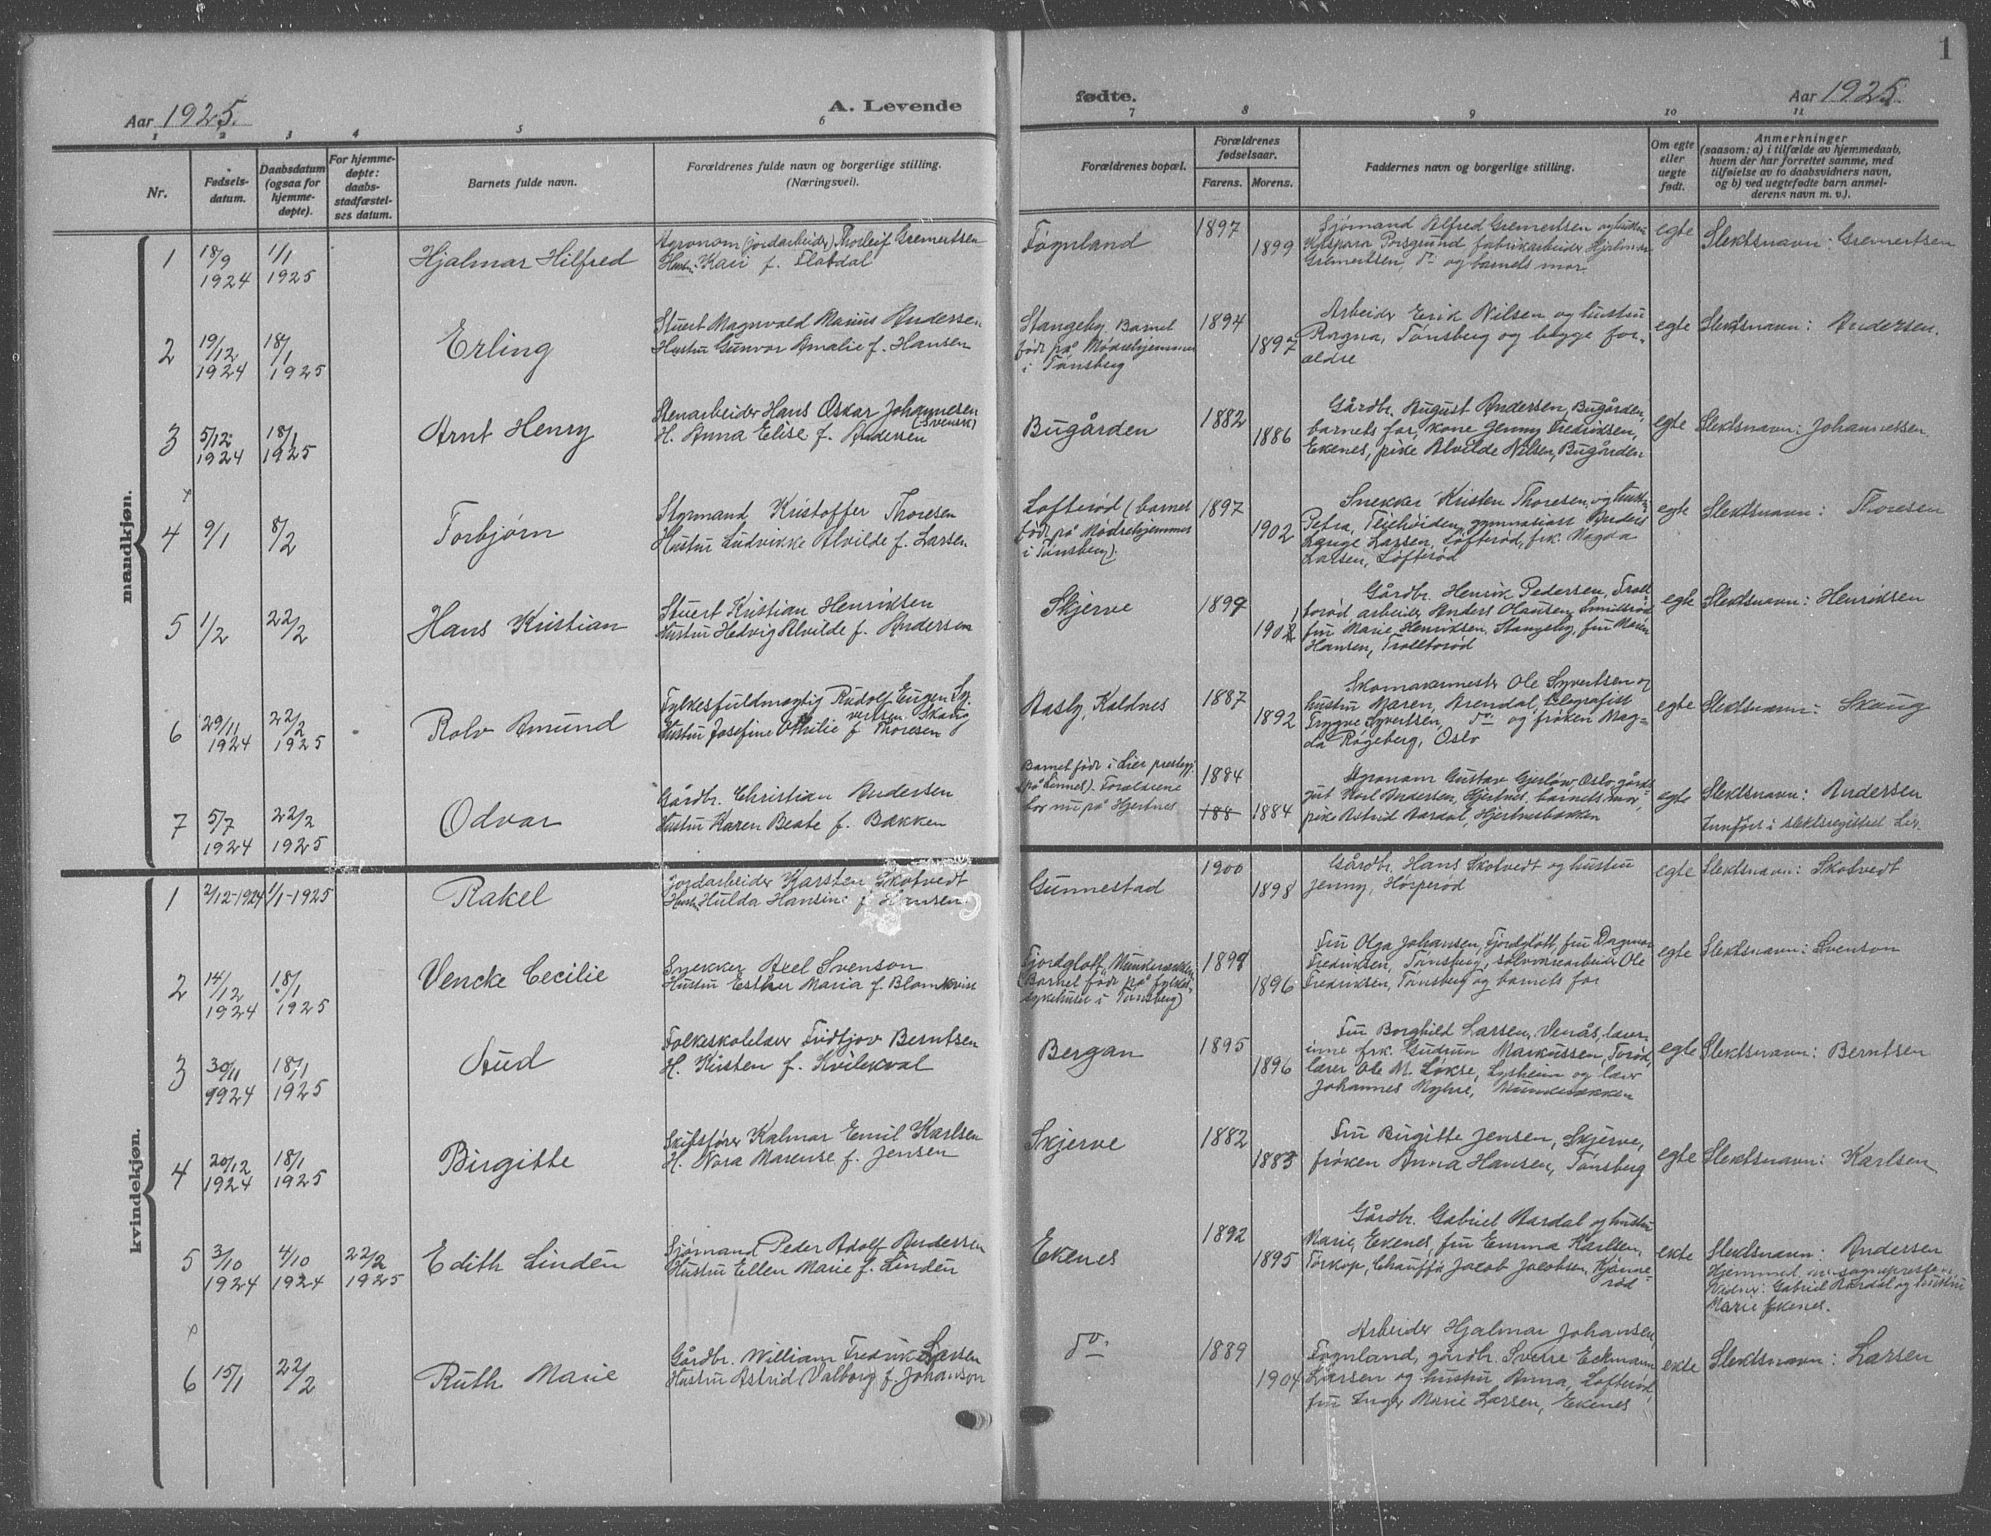 1
Aar 1925.
A. Levende
fødte.
Aar 1925.
1 2 3 4 5 6 7 8 9 10 11
Nr.
Fødsels-
datum.
Daabsdatum
(ogsaa for
hjemme-
døpte).
For hjemme-
døpte:
daabs-
stadfæstel-
ses datum.
Barnets fulde navn.
Forældrenes fulde navn og borgerlige stilling.
(Næringsvei).
Forældrenes bopæl.
Forældrenes
fødselsaar.
Farens. Morens.
Faddernes navn og borgerlige stilling.
Om egte
eller
uegte
født.
Anmerkninger
(saasom: a) i tilfælde av hjemmedaab,
hvem der har forrettet samme, med
tilføielse av to daabsvidners navn,
og b) ved uegtefødte barn anmel-
derens navn m. v.).
mandkjøn.
1 18/9 1924 1/1 1925 Hjalmar Hilfred
Agronom (jordarbeider) Thorleif Gremertsen
Hustru Kari f. Flatdal
Fögnland 1897 1899
Sjømand Alfred Gremertsen og hustru
Kaspara Porsgrund, fabrikarbeider Hjalmar
Gremertsen, do og barnets mor.
egte Slektsnavn: Gremertsen
2 19/12 1924 18/1 1925 Erling
Stuert Magnvald Marius Andersen
Hustru Gunvor Amalie f. Hansen
Stangeby. Barnet
født på Mødrehjemmet
i Tønsberg
1894 1897
Arbeider Erik Nilsen og hustru
Ragna, Tønsberg og begge for-
ældre
egte Slektsnavn: Andersen.
3 5/12 1924 18/1 1925 Arnt Henry
Stenarbeider Hans Oskar Johannesen
(svensk)
H. Anna Elise f. Andersen
Bugården 1882 1886
Gårdbr. August Andersen, Bugården,
barnets far, kone Jenny Fredriksen,
Ekenes, pike Alvilde Nilsen, Bugården
egte Slektsnavn: Johannessen
4 9/1 8/2 Torbjørn
Styrmand Kristoffer Thoresen
Hustru Ludvikke Alvilde f. Larsen
Løfterød (barnet
født på Mødrehjemmet
i Tønsberg).
1897 1902
Snekker Kristen Thoresen og hustru
Petra, Teiehøiden, gymnasiast Anders
Lauge Larsen, Løfterød, frk. Magda
Larsen, Løfterød
egte Slektsnavn: Thoresen
5 1/2 22/2 Hans Kristian
Stuert Kristian Henriksen
Hustru Hedvig Alvilde f. Andersen
Skjerve 1899 1902
Gårdbr. Henrik Pedersen, Troll-
torød, arbeider Anders Olausen,
fru Marie Henriksen, Stangeby, fru Maren
Hansen, Trolltorød
egte Slektsnavn: Henriksen
6 29/11 1924 22/2 1925 Rolv Amund
Fylkesfuldmægtig Rudolf Eugen Sy-
vertsen Skaug
Hustru Josefine Othilie f. Thoresen
Aasly, Kaldnes 1887 1892
Skomakermester Ole Syvertsen og
hustru Maren, Arendal, telegrafist
Trygve Syvertsen, do og frøken Mag-
da Røgeberg, Oslo
egte Slektsnavn: Skaug
7 5/7 1924 22/2 1925 Odvar
Gårdbr. Christian Andersen
Hustru Karen Beate f. Bakken
Barnet født i Lier prestegj.
(på Linnes). Forældrene
bor nu på Hjertnes
1884 188 1884
Agronom Gustav Gjerløw, Oslo, gårds-
gut Karl Andersen, Hjertnes, barnets mor,
pike Astrid Aardal, Hjertnesbakken
egte Slektsnavn: Andersen
Innført i slektsregistret Lier
kvindekjøn.
1 2/12-1924 1/1-1925 Rakel
Jordarbeider Karsten Skotvedt
Hust. Hulda Hansine f. Hansen.
Gunnestad 1900 1898
Gårdbr. Hans Skotvedt og hustru
Jenny, Hørperød
egte Slektsnavn: Skotvedt
2 14/12 1924 18/1 1925 Vencke Cecilie
Snekker Axel Svenson
Hustru Esther Maria f. Blomkvist
Fjordgløtt, Munderækken
(Barnet født på fylkes-
sykehuset i Tønsberg)
1899 1896
Fru Olga Johansen, Fjordgløtt, fru Dagmar
Fredriksen, Tønsberg, sølvvarearbeider Ole
Fredriksen, Tønsberg og barnets far
egte Slektsnavn: Svenson
3 30/11 9924 18/1 1925 Aud
Folkeskolelærer Fridtjov Berntsen
H. Kirsten f. Kvilekval
Bergan 1895 1896
Fru Borghild Larsen, Venås, lærer-
inne frk. Gudrun Markussen, Torød,
lærer Ole M. Løkse, Lysheim og lærer
Johannes Myhre, Munkerækken
egte Slektsnavn: Berntsen
4 20/12 1924 18/1 1925 Birgitte
Skibsfører Kalmar Emil Karlsen
H. Nora Marense f. Jensen
Skjerve 1882 1883
Fru Birgitte Jensen, Skjerve,
frøken Anna Hansen, Tønsberg
egte Slektsnavn: Karlsen
5 3/10 1924 4/10 1924 22/2 1925 Edith Linden
Sjømand Peder Adolf Andersen
Hustru Ellen Marie f. Linden
Ekenes 1892 1895
Gårdbr. Gabriel Aardal og hustru
Marie, Ekenes, fru Emma Karlsen,
Torkop, Chauffør Jacob Jacobsen, Kjønne-
rød
ekte Slektsnavn: Andersen
Hjemmet
Vidner: Gabriel Aardal og hustru
Marie Ekenes.
6 15/1 22/2 Ruth Marie
Gårdbr. William Fredrik Larsen
Hustru Astrid Valborg f. Johanson
do 1889 1904
Arbeider Hjalmar Johansen,
Fögnland, gårdbr. Sverre Eckmann
Larsen og hustru Anna, Løfterød,
fru Inger Marie Larsen, Ekenes
ekte Slektsnavn: Larsen